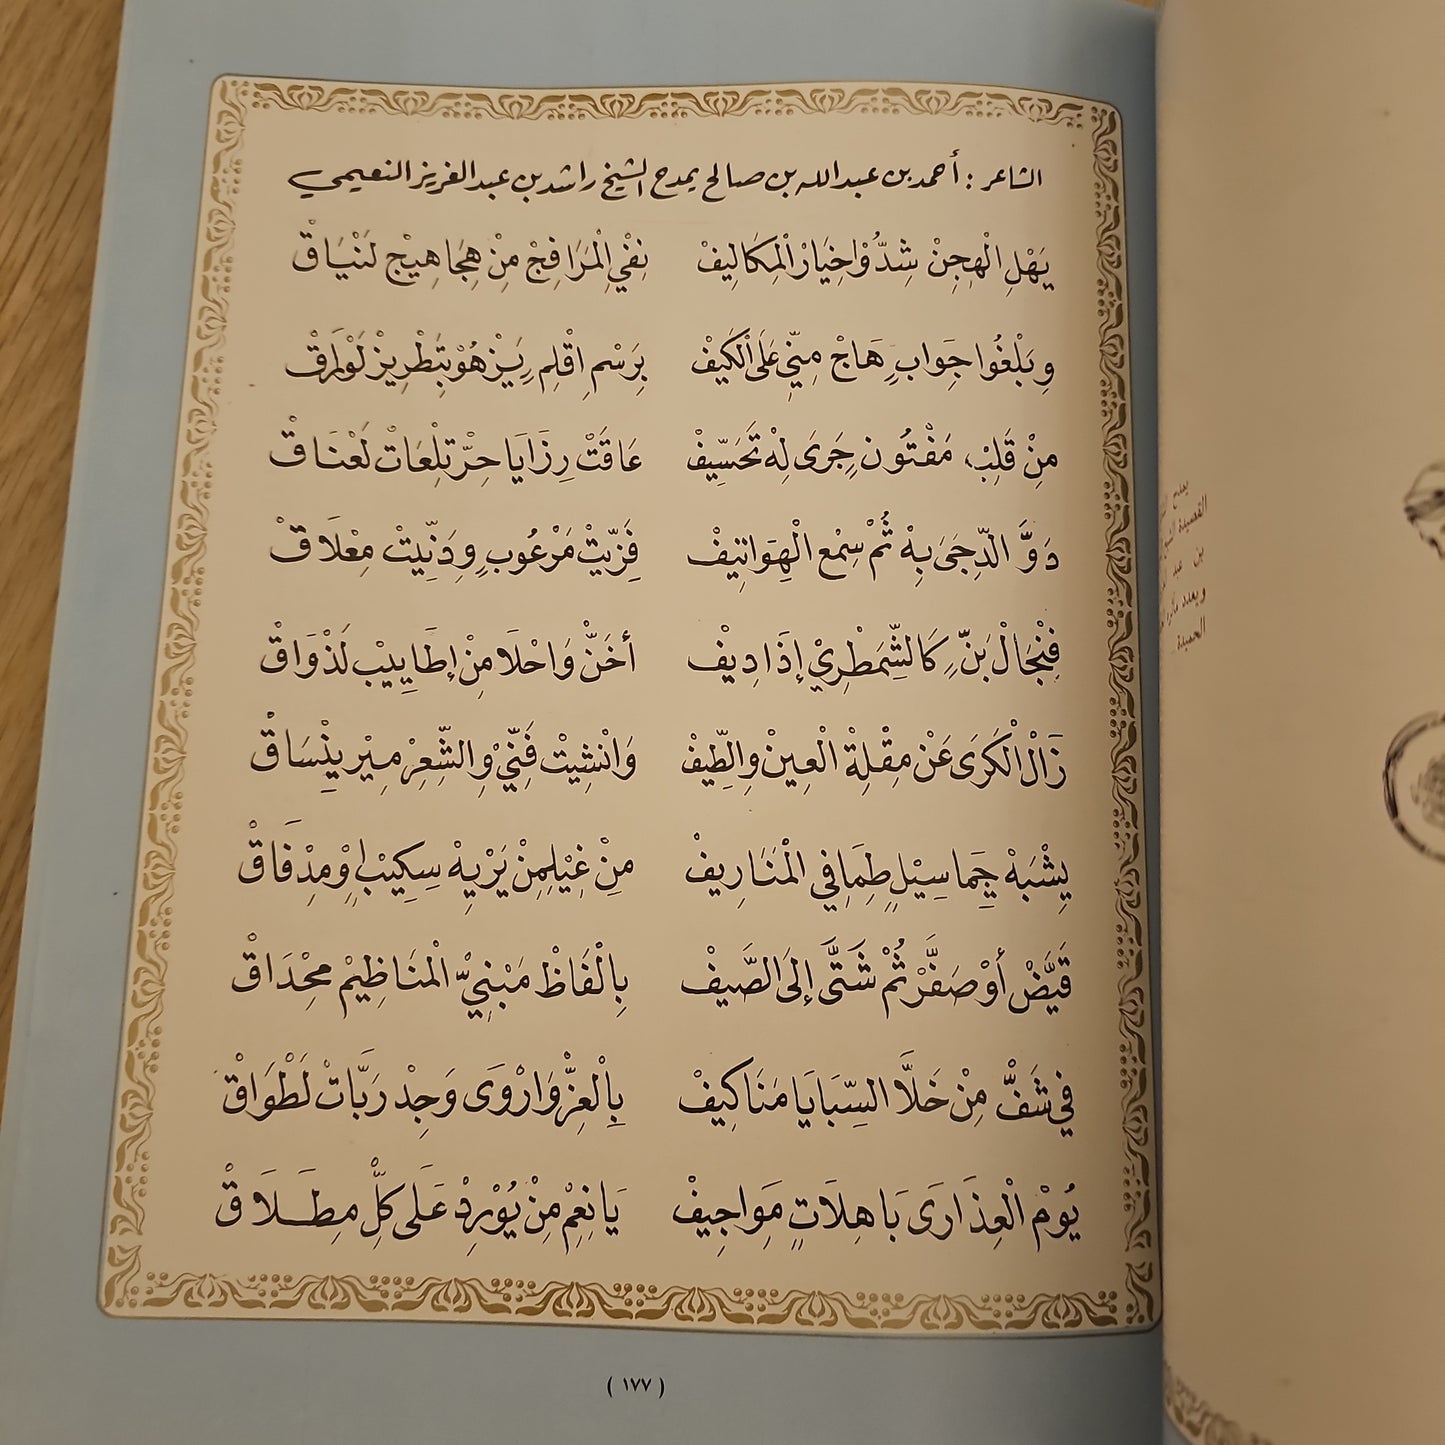 الشاعر : أحمد بن عبدالله بن صالح يمدح الشيخ راشد بن عبدالعزيز النعيمي
يَهْلِ الْهِجِنْ شِدُّوْا خِيَارْ الْمِكَالِيفْ نِفْيِ الْمَرَافِجْ مِنْ هِجَاهِيْج لَنْيَاقْ
وِبَلْغُوا جَوِابٍ هَاجْ مِنِّي عَلَى الْكَيْفْ بِرَسْمِ اقْلِمٍ رَيِزْ هُوْ بِتَطْرِيزْ لَوْرَاقْ
مِنْ قَلِبْ مَفْتُونٍ جَرَى لِهْ تَحَسِّيِفْ عَاقَتْ رِزَايَا حِرّ تِلْعَاتْ لَعْنَاقْ
دَوَّ الدِّجَى بِهْ ثُمْ سِمْع الْهِوَاتِيفْ فِزَّيْتْ مَرْعُوبٍ وِدَنِّيتْ مِعْلَاقْ
فِنْجَالْ بَنٍّ كَالشِّمَطْرِيْ إِذَا دِيفْ أخَنّْ وَاحْلَا مِنْ إِطَايِيْب لَذْوَاقْ
زَالْ الْكَرَى عَنْ مِقْلِةْ الْعِينْ وِالطِّيفْ وَانْشِيْتْ فَنِّيْ وِالشِّعِرْ مِيْر يِنْسَاقْ
يِشْبَهْ جِمَا سِيْلٍ طِمَا فِي الْمَنَارِيفْ مِنْ غِيْلِمِنْ يَزِيهْ سِكِيْبٍ وِمِدْفَاقْ
قَيَّضْ أَوْ صَفَّرْ ثُمْ شَتَّى إِلَى الصَّيفْ بِالْفَاظْ مَبْنِيّ الْمَنَاظِيمْ مِحْدَاقْ
فِي شَفّْ مِنْ خَلَّا السِّبَايَا مَنَاكِيفْ بِالْعِزّْ وَارْوَى وَجِدْ رَبَّاتْ لَطْوَاقْ
يُوْمْ الْعِذَارَى بَاهِلَاتٍ مَوِاجِيفْ يَا نِعِمْ مِنْ يُوْرِدْ عَلَى كِلّْ مِطْلَاقْ
( ١٧٧ )
يمدح
القصيدة
بن عبد
ويعدد
الحميدة